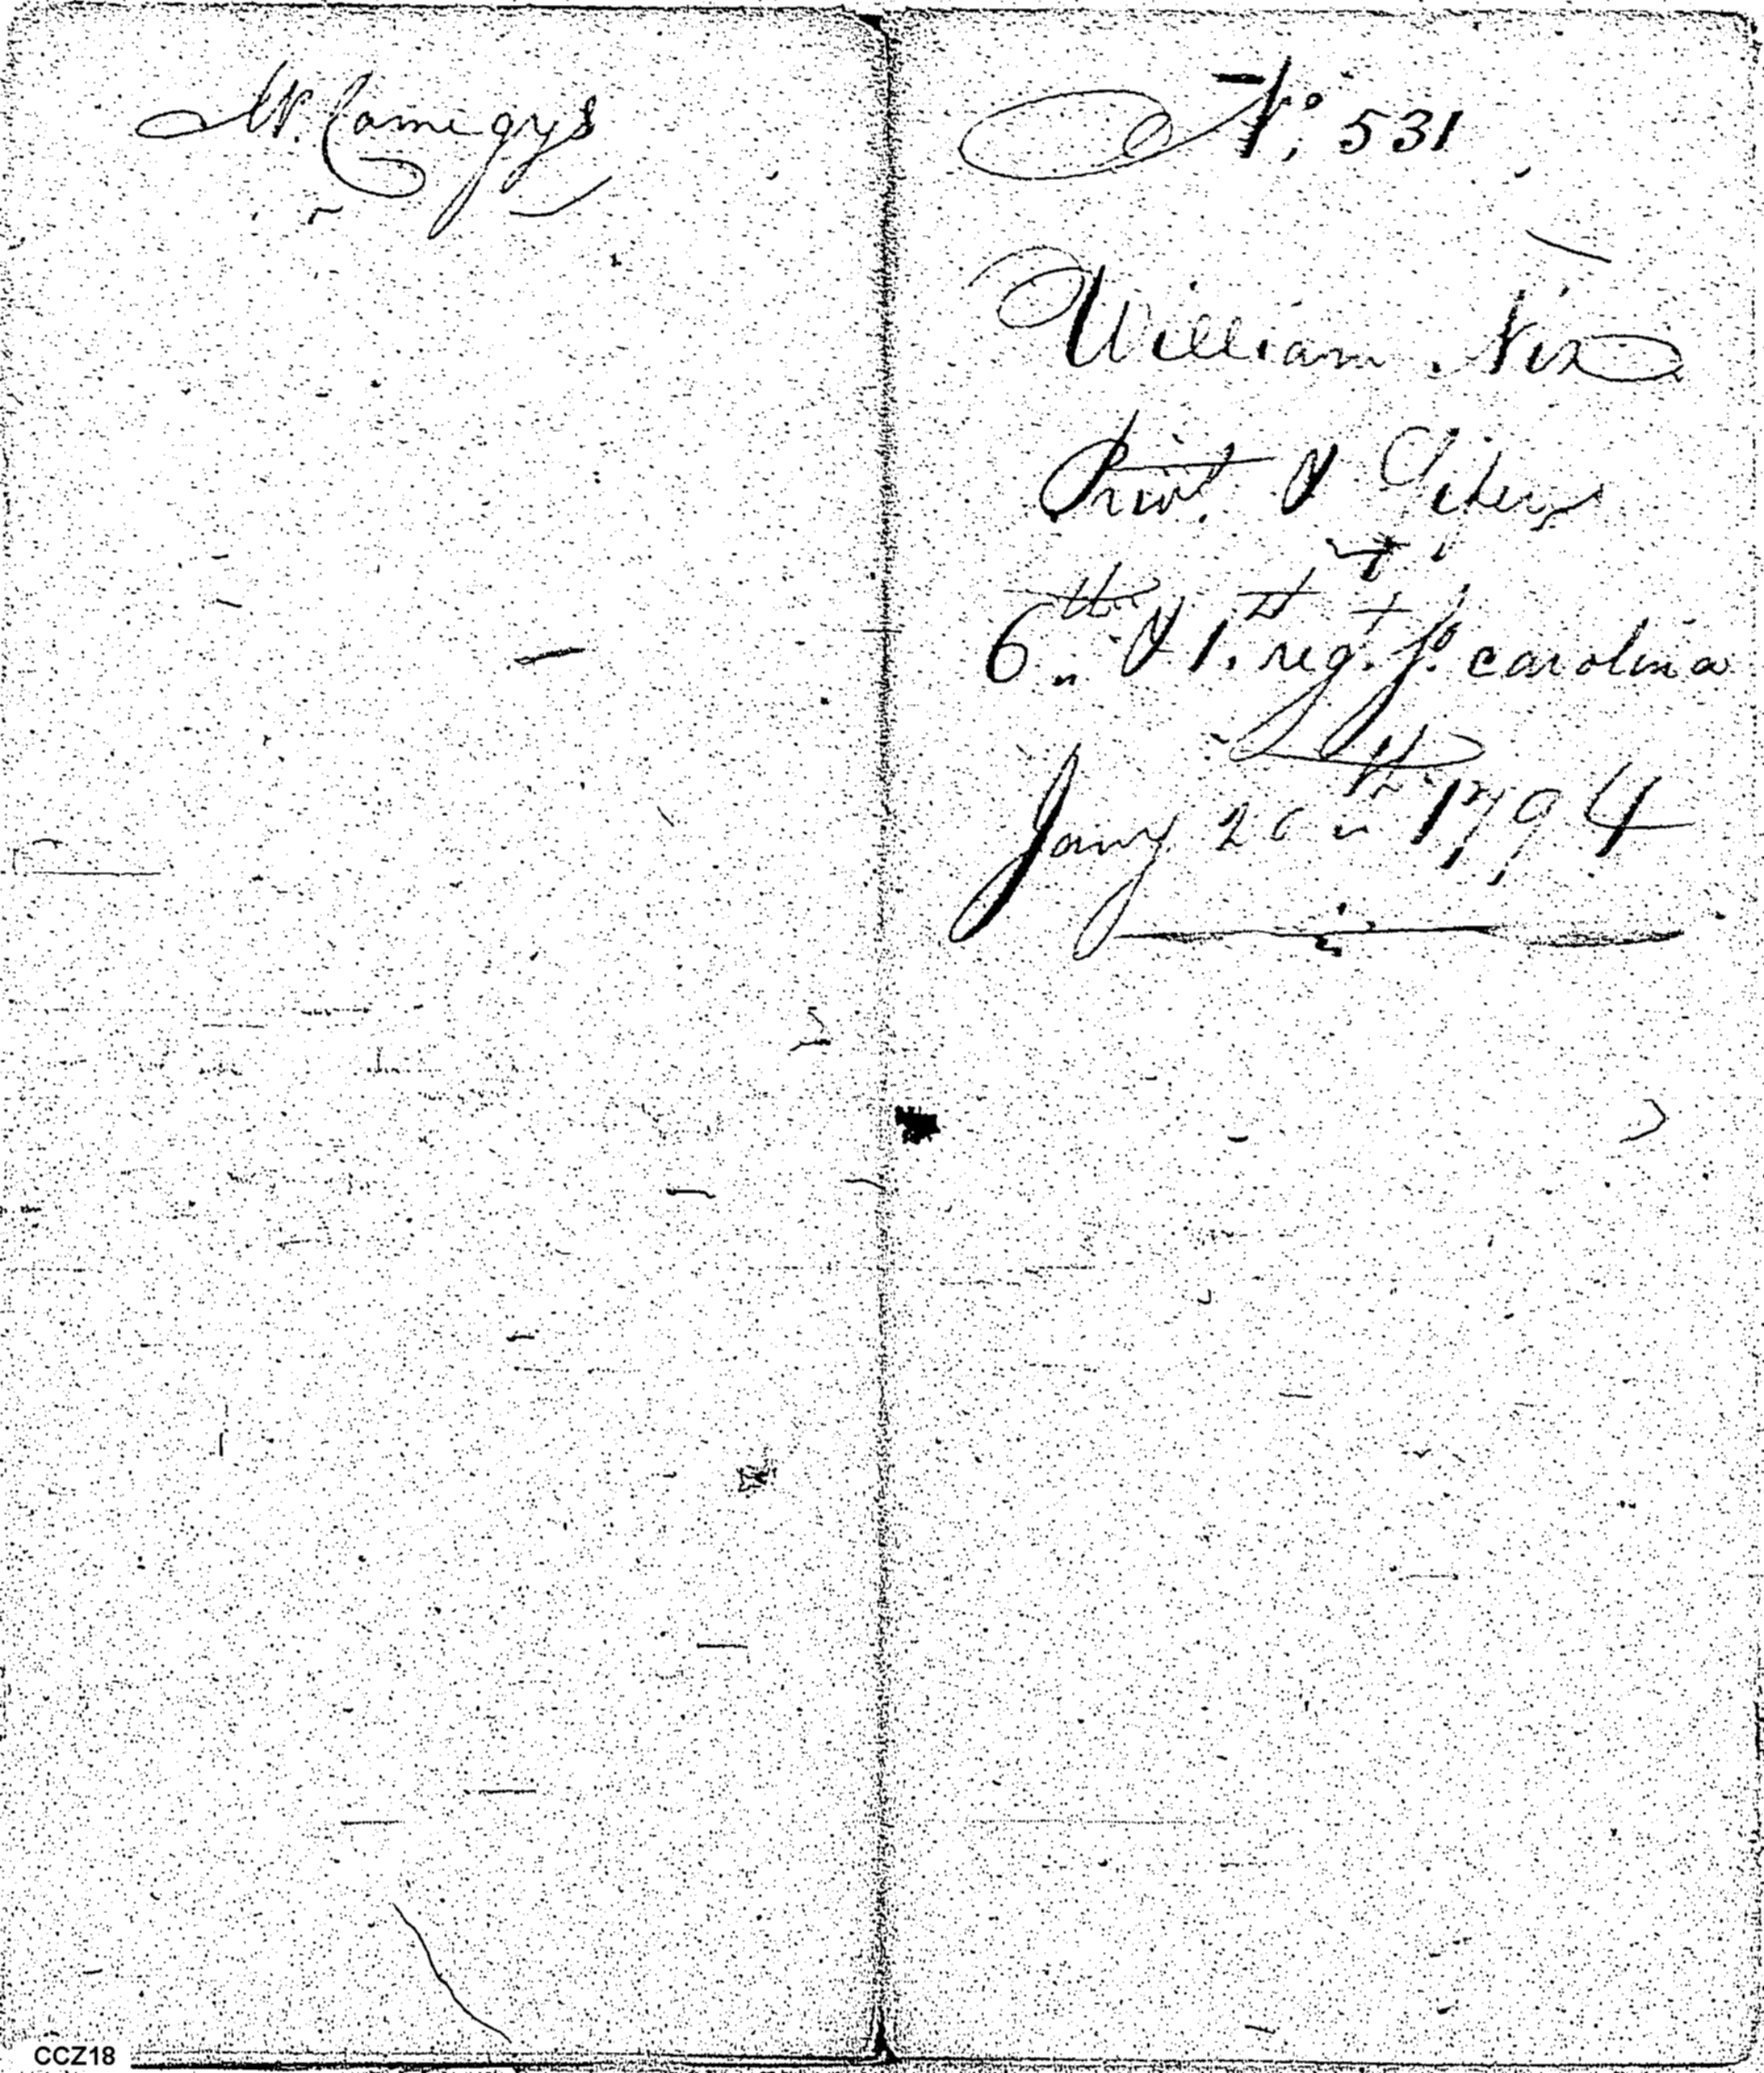 W. Comegys
No. 531
William Nix
Privt. & Fifer
6th & 1st regt. So. carolina
Jany 20th 1794
CCZ18